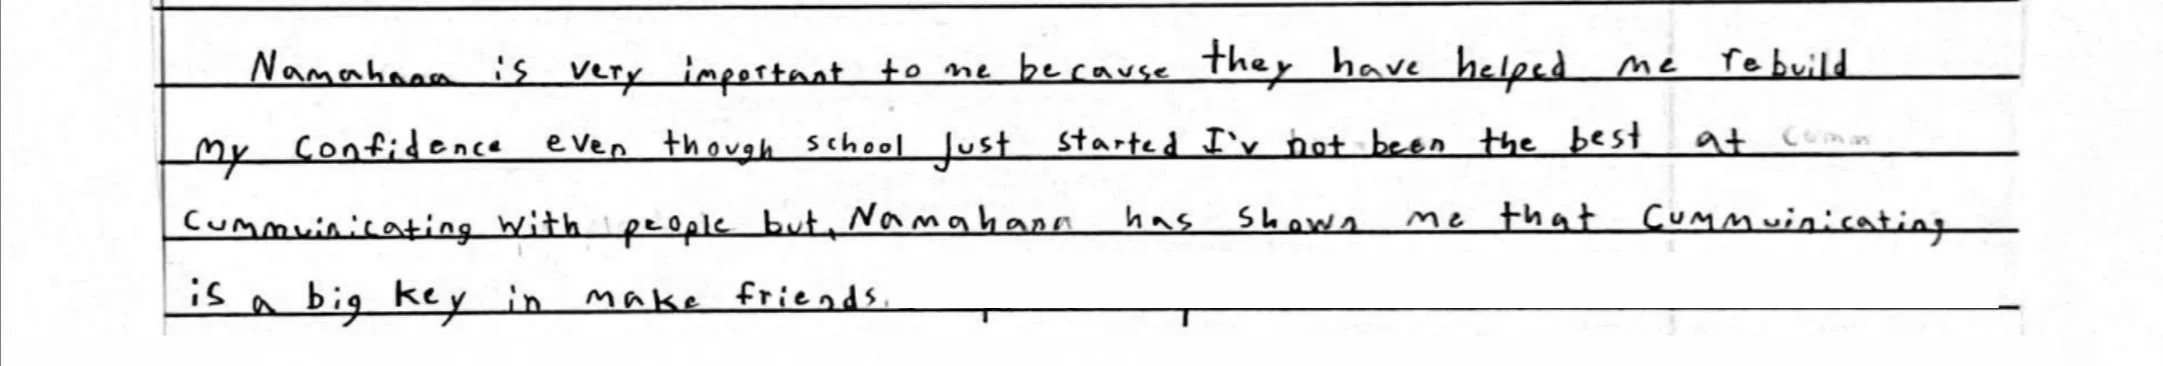 Namahana is very important to me because they have helped me rebuild
my confidence even though school just started I'v not been the best at cumm
cummuinicating with people but, Namahana has shown me that cummuinicating
is a big key in make friends.